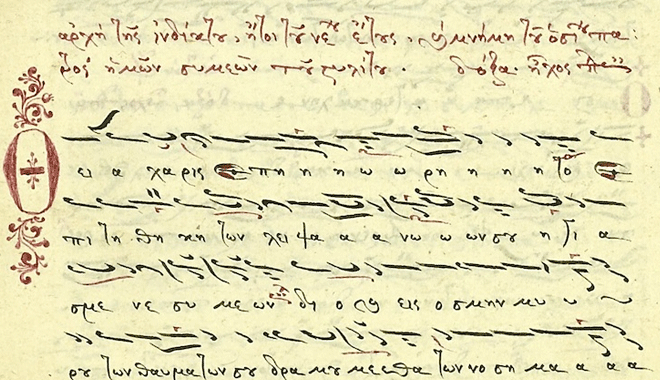 ἀρχὴ τῆς ἰνδίκτου, ἤτοι τοῦ νέου ἔτους. καὶ μνήμη τοῦ ὁσίου πα
τρὸς ἡμῶν συμεὼν τοῦ στυλίτου. δόξα. ἦχος πλ
Θ ει α χαρις ε πη η η ω ω ρη η η η το ε
πι τη θη κη των λει ψα α α α νω ω ων σου η γι α
σμε νε συ με ων δι ο και εις ο σμην μυ υ υ
ρου των θαυμα των σου δρα μου με θα των νο ση μα α α α